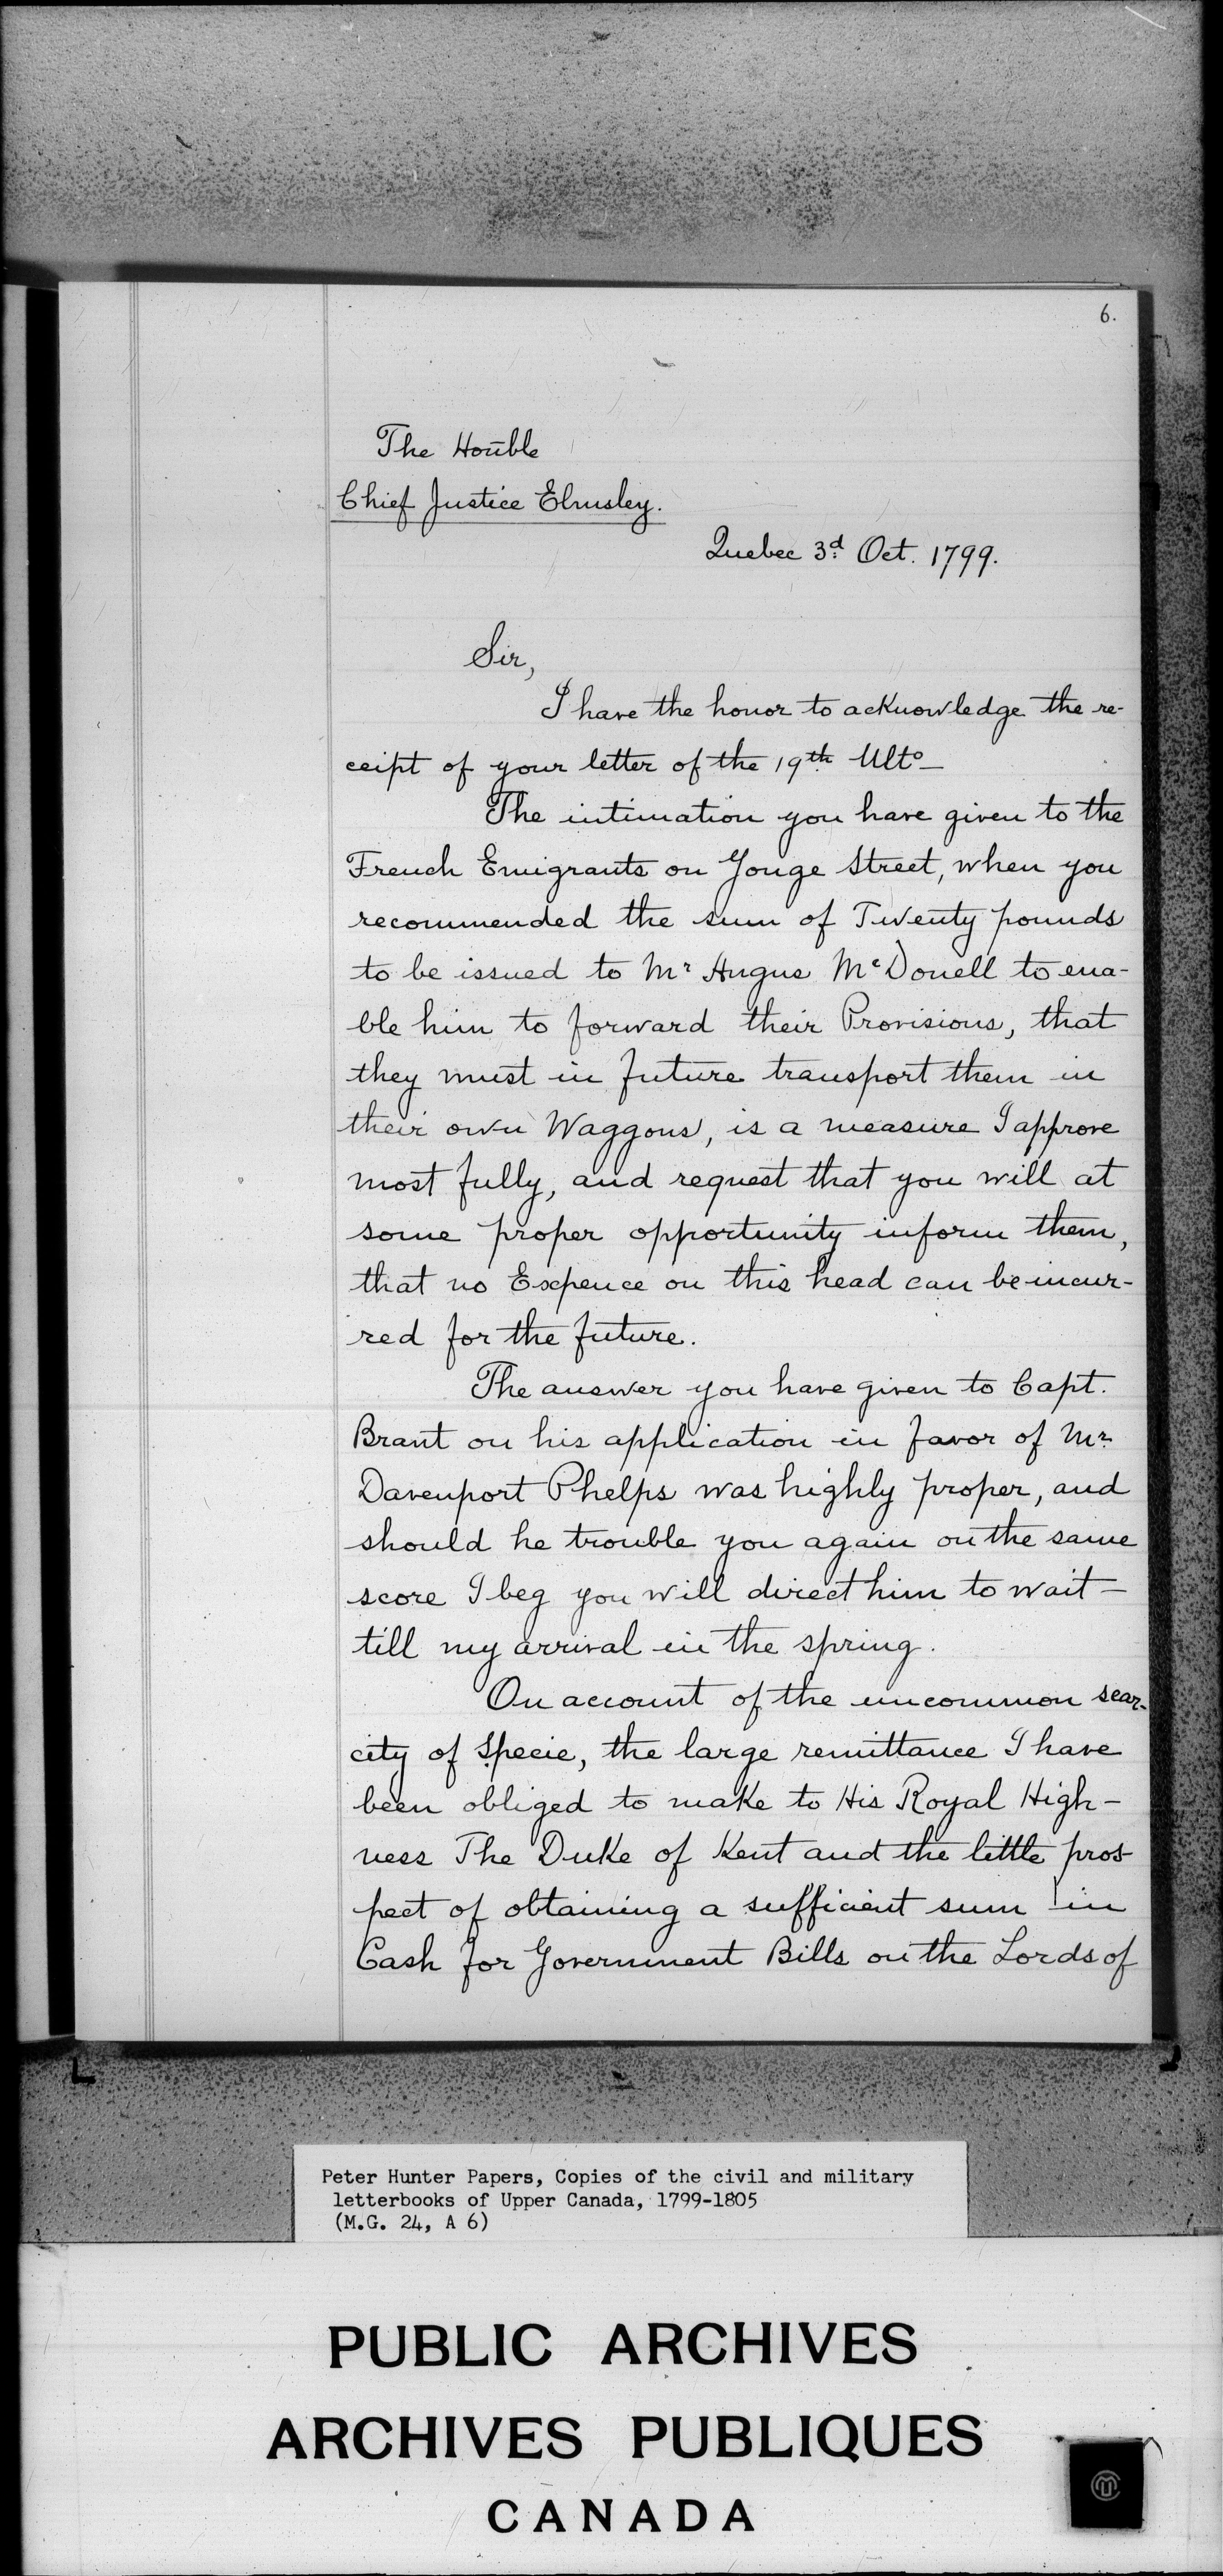 6.
The Honble
Chief Justice Elmsley.
Quebec 3d Oct. 1799.
Sir,
I have the honor to acknowledge the re-
ceipt of your letter of the 19th Ulto_
The intimation you have given to the
French Emigrants on Yonge Street, when you
recommended the sum of Twenty pounds
to be issued to Mr Angus McDonell to ena-
ble him to forward their Provisions, that
they must in future transport them in
their own Waggons, is a measure I approve
most fully, and request that you will at
some proper opportunity inform them,
that no Expence on this head can be incur-
red for the future.
The answer you have given to Capt.
Brant on his application in favor of Mr
Davenport Phelps was highly proper, and
should he trouble you again on the same
score I beg you will direct him to wait –
till my arrival in the spring.
On account of the uncommon scar-
city of Specie, the large remittance I have
been obliged to make to His Royal High-
ness The Duke of Kent and the little pros-
pect of obtaining a sufficient sum in
Cash for Government Bills on the Lords of
Peter Hunter Papers, Copies of the civil and military
letterbooks of Upper Canada, 1799-1805
(M.G. 24, A 6)
PUBLIC ARCHIVES
ARCHIVES PUBLIQUES
CANADA